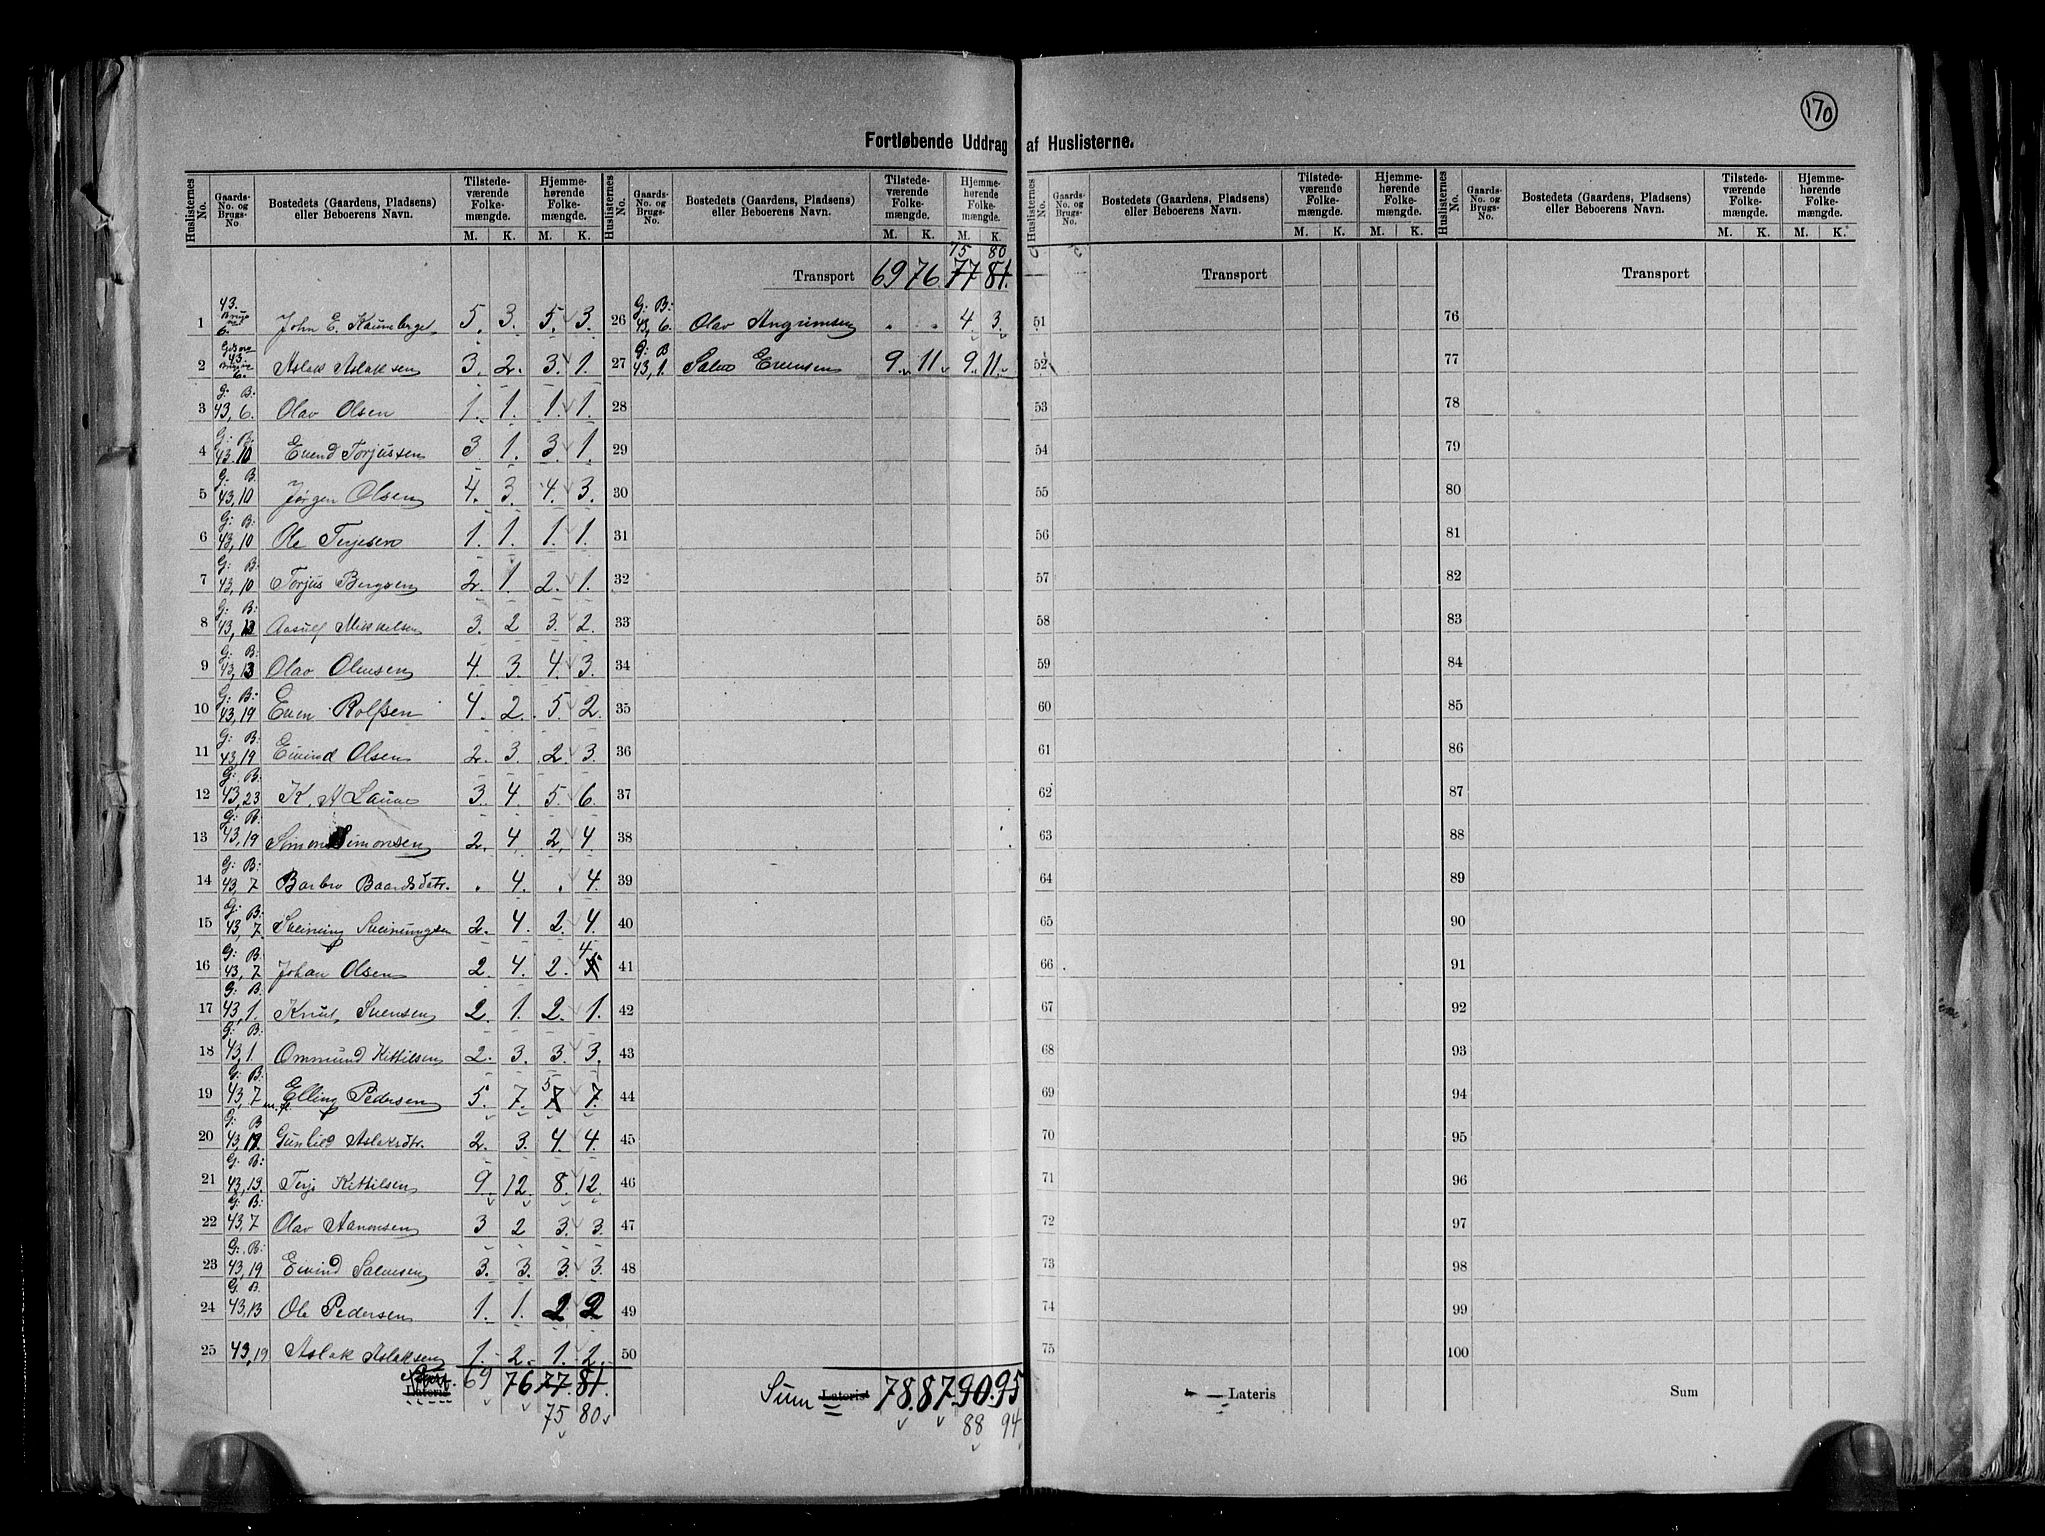 170
Fortløbende Uddrag af Huslisterne.
Huslisternes No. Gaards-No. og Brugs-No Bostedets (Gaardens, Pladsens) eller Beboerens Navn. Tilstede-værende Folke-mængde. M. K. Hjemme-hørende Folke-mængde. M. K.
1 43. 6. John E. 5. 3. 5. 3.
2 43. 6. Aslak Aslaksen 3. 2. 3. 1.
3 G: B: 43, 6. Olav Olsen 1. 1. 1. 1.
4 G: B: 43. 10 Evend Torjussen 3. 1. 3. 1.
5 G: B. 43, 10 Jørgen Olsen 4. 3. 4. 3.
6 G: B: 43, 10 Ole Terjesen 1. 1. 1. 1.
7 G: B: 43, 10 Torjus Bergsen 2. 1. 2. 1.
8 G: B: 43, 13 Aasulf Mikkelsen 3. 2 3. 2.
9 G: B: 43, 13 Olav 4. 3. 4. 3.
10 G: B: 43, 19 Even Rolfsen 4. 2. 5. 2.
11 G: B: 43, 19 Eivind Olsen 2. 3. 2 3.
12 G: B. 43, 23 K. A 3. 4. 5. 6.
13 G: B. 43, 19 Simon Simonsen 2. 4. 2. 4.
14 G: B: 43, 7 Barbro Baardsdtr. . 4. . 4.
15 G: B: 43, 7. 2. 4. 2. 4.
16 G: B. 43, 7. Johan Olsen 2. 4. 2. 4
17 G: B. 43, 1. Knut Svensen 2. 1. 2. 1.
18 G: B: 43, 1. Ommund Kittilsen 2. 3. 3. 3.
19 G: B: 43, 7 Elling Pedersen 5. 7. 7 5 7.
20 G: B 43, 19. Gunbiør Aslaksdtr. 2. 3. 4. 4.
21 G: B: 43, 19. Terje Kittilsen 9. 12. 8. 12.
22 G: B: 43, 7 Olav Aanonsen 3 2 3. 3.
23 G: B: 43, 19 Eivind Salvesen 3. 3. 3. 3.
24 G: B. 43, 13 Ole Pedersen 1. 1. 2 2
25 43, 19 Aslak Aslaksen 1. 2. 1. 2.
Lateris 69 76 77. 81.
75 80
Huslisternes No. Gaards-No. og Brugs-No. Bostedets (Gaardens, Pladsens) eller Beboerens Navn. Tilstede-værende Folke-mængde. M. K. Hjemme-hørende Folke-mængde. M. K.
75 80
Transport 69 76. 77 81.
26 G: B: 43, 6. Olav . . 4. 3.
27 G: B 43, 1. Salve Evensen 9. 11. 9. 11.
28
29
30
31
32
33
34
35
36
37
38
39
40
41
42
43
44
45
46
47
48
49
50
Sum Lateris 78. 87. 90. 95
88 94
Huslisternes No. Gaards-No. og Brugs-No. Bostedets (Gaardens, Pladsens) eller Beboerens Navn. Tilstede-værende Folke-mængde. M. K. Hjemme-hørende Folke-mængde. M. K.
Transport
51
52
53
54
55
56
57
58
59
60
61
62
63
64
65
66
67
68
69
70
71
72
73
74
75
Lateris
Huslisternes No. Gaards-No. og Brugs-No. Bostedets (Gaardens, Pladsens) eller Beboerens Navn. Tilstede-værende Folke-mængde. M. K. Hjemme-hørende Folke-mængde. M. K.
Transport
76
77
78
79
80
81
82
83
84
85
86
87
88
89
90
91
92
93
94
95
96
97
98
99
100
Sum